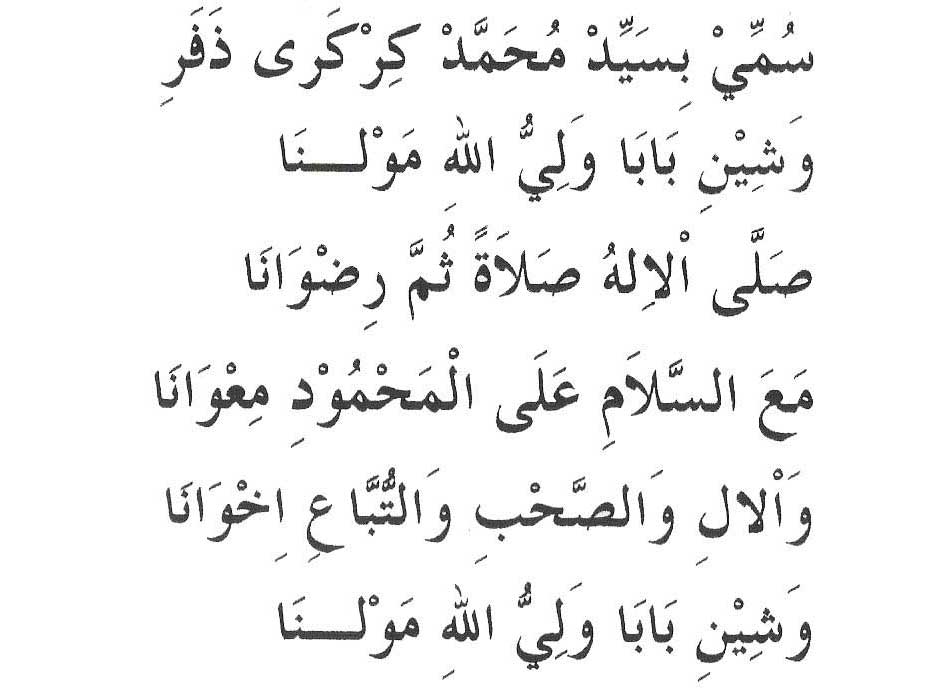 سُمِّيْ بِسَيِّدْ مُحَمَّدْ كِرْكَرى ذَفَرِ
وَشِيْنِ بَابَا وَلِيُّ اللهِ مَوْلـــنَا
صَلَّى اْلاِلهُ صَلاَةً ثُمَّ رِضْوَانَا
مَعَ السَّلاَمِ عَلَى الْمَحْمُوْدِ مِعْوَانَا
وَاْلالِ وَالصَّحْبِ وَالتُّبَّاعِ اِخْوَانَا
وَشِيْنِ بَابَا وَلِيُّ اللهِ مَوْلـــنَا